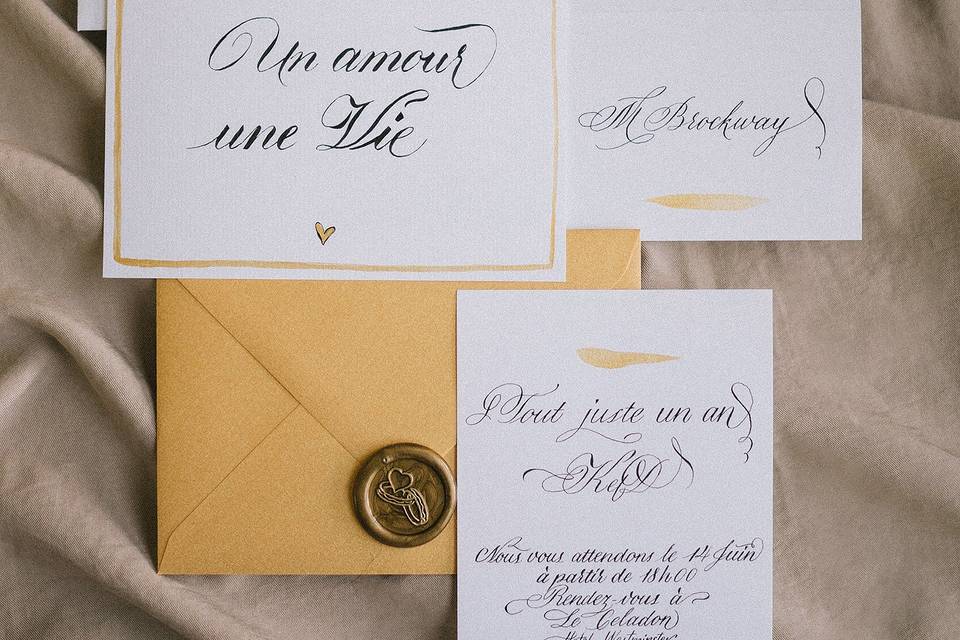 Un amour
une Vie
M Brockway
Tout juste un an
K&D
Nous vous attendons le 14 Juin
à partir de 18h00
Rendez-vous à
Le Celadon
Hotel Westminster